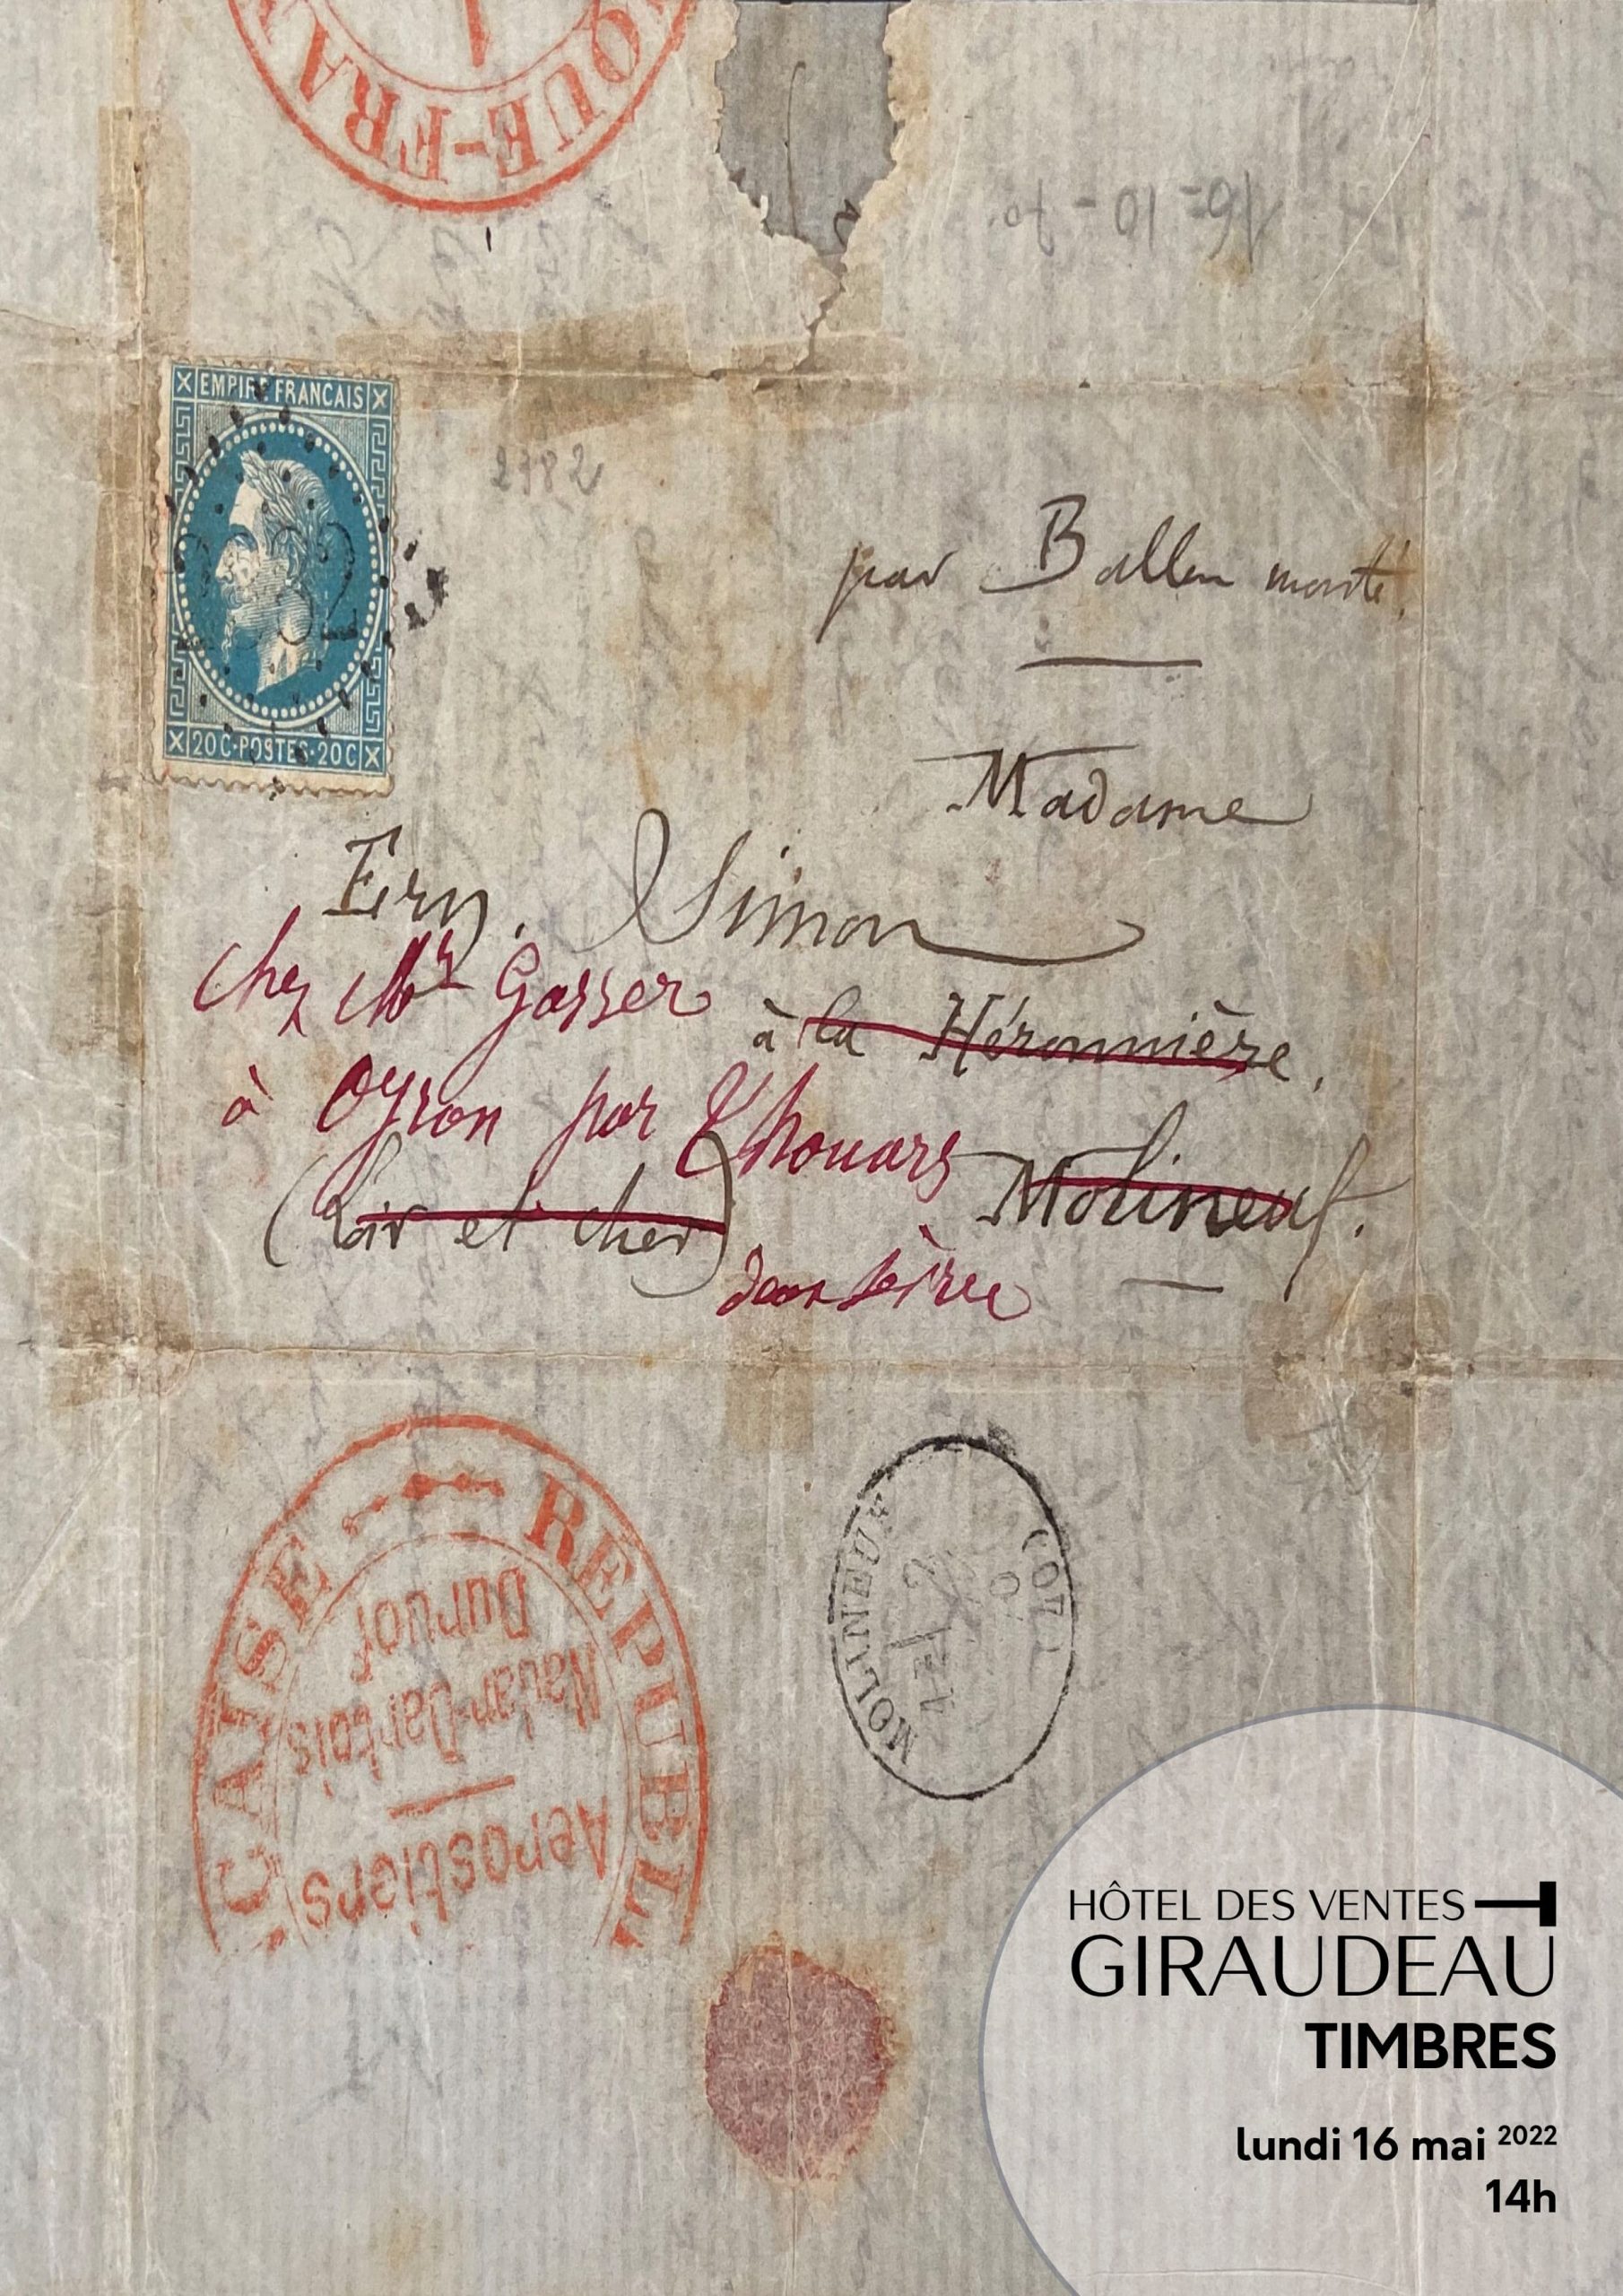 QUE-FRA
16-10-70.
EMPIRE FRANCAIS
20C·POSTES·20C
2782
par Ballon monté.
Madame
Ern. Simon
chez Mr Gasser
à la Héronnière,
à Oyron par Thouars
Molineuf.
(Loir et cher)
deux sèvre
CAISE REPUBL
Aerostiers
Nadar-Dartois
Duruof
MOLINEUF
HÔTEL DES VENTES
GIRAUDEAU
TIMBRES
lundi 16 mai 2022
14h